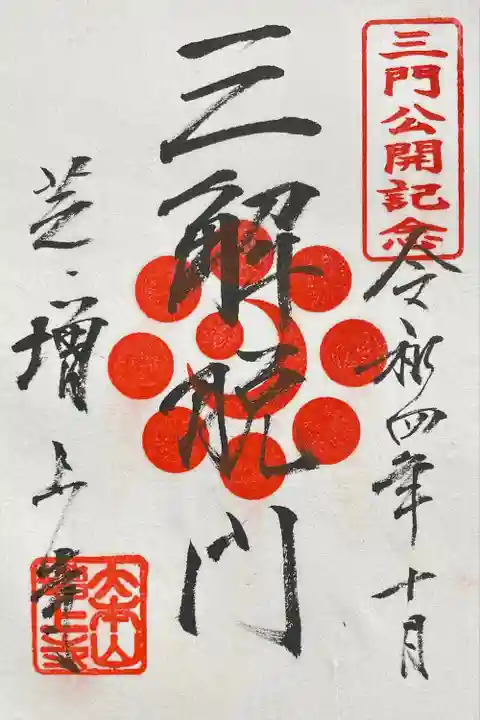 三門公開記念
令和四年十月
三解脱門
芝・増上寺
大本山増上寺